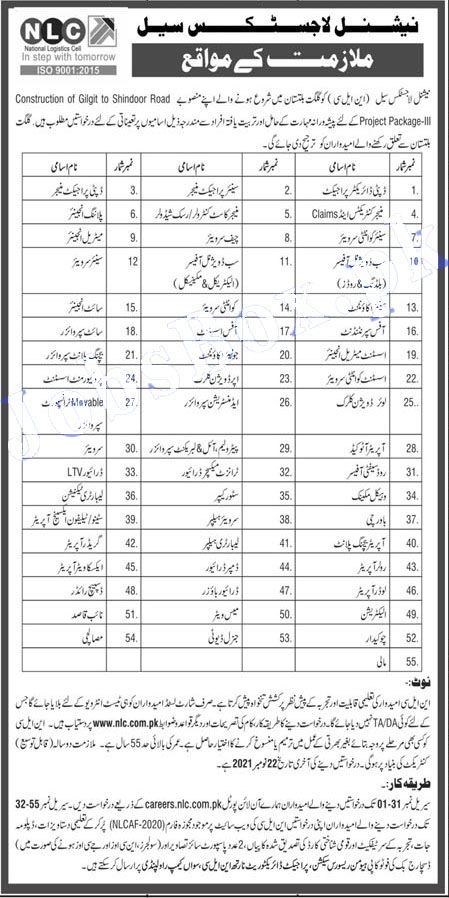 نیشنل لاجسٹکس سیل
ملازمت کے مواقع
NLC
National Logistics Cell
In step with tomorrow
ISO 9001:2015
نیشنل لاجسٹکس سیل (این ایل سی) کو گلگت بلتستان میں شروع ہونے والے اپنے منصوبے Construction of Gilgit to Shindoor Road
Project Package-III کے لئے پیشہ ورانہ مہارت کے حامل اور تربیت یافتہ افراد سے مندرجہ ذیل اسامیوں پر تعیناتی کے لئے درخواستیں مطلوب ہیں۔ گلگت
بلتستان سے تعلق رکھنے والے امیدواران کو ترجیح دی جائے گی۔
نمبر شمار نام اسامی نمبر شمار نام اسامی نمبر شمار نام اسامی
1. ڈپٹی ڈائریکٹر پراجیکٹ 2. سینئر پراجیکٹ منیجر 3. ڈپٹی پراجیکٹ منیجر
4. منیجر کنٹریکٹس اینڈ Claims 5. منیجر کاسٹ کنٹرولر/رسک شیڈولر 6. پلاننگ انجینئر
7. سینئر کوانٹٹی سرویئر 8. چیف سرویئر 9. میٹریل انجینئر
10. سب ڈویژنل آفیسر 11. سب ڈویژنل آفیسر 12. سینئر سرویئر
(بلڈنگ & روڈز) (الیکٹریکل & مکینیکل)
13. سینئر اکاؤنٹنٹ 14. کوانٹٹی سرویئر 15. سائٹ انجینئر
16. آفس سپرنٹنڈنٹ 17. آفس اسسٹنٹ 18. سائٹ سپروائزر
19. اسسٹنٹ میٹریل انجینئر 20. جونیئر اکاؤنٹنٹ 21. بیچنگ پلانٹ سپروائزر
22. اسسٹنٹ کوانٹٹی سرویئر 23. اپر ڈویژن کلرک 24. پروکیورمنٹ اسسٹنٹ
25.. لوئر ڈویژن کلرک 26. ایڈمنسٹریشن سپروائزر 27. Movable ٹرانسپورٹ
سپروائزر
28. آپریٹر آٹوکیڈ 29. پیٹرولیم، آئل & لبریکنٹ سپروائزر 30. سرویئر
31. روڈ سیفٹی آفیسر 32. ٹرانزٹ مکسچر ڈرائیور 33. ڈرائیور LTV
34. وہیکل مکینک 35. سٹور کیپر 36. لیبارٹری ٹیکنیشن
37. باورچی 38. سرویئر ہیلپر 39. سٹینو/ٹیلیفون ایکسچینج آپریٹر
40. آپریٹر بیچنگ پلانٹ 41. لیبارٹری ہیلپر 42. گریڈر آپریٹر
43. رولر آپریٹر 44. ڈمپر ڈرائیور 45. ایکسکاویٹر آپریٹر
46. لوڈر آپریٹر 47. ڈرائیور باؤزر 48. ڈسپیچ رائڈر
49. الیکٹریشن 50. میس ویٹر 51. نائب قاصد
52. چوکیدار 53. جنرل ڈیوٹی 54. مصالچی
55. مالی
نوٹ:-
این ایل سی امیدوار کی تعلیمی قابلیت اور تجربہ کے پیش نظر پرکشش تنخواہ پیش کرتا ہے۔ صرف شارٹ لسٹڈ امیدواران کو ہی ٹیسٹ انٹرویو کے لئے بلایا جائے گا جس
کے لئے کوئی TA/DA نہیں دیا جائے گا۔ درخواست دینے کا طریقہ کار، کام کی تصریحات اور دیگر قواعد و ضوابط www.nlc.com.pk پر دستیاب ہیں۔ این ایل سی
کو کسی بھی مرحلے پر وجہ بتائے بغیر بھرتی کے عمل میں ترمیم یا منسوخ کرنے کا اختیار حاصل ہے۔ عمر کی بالائی حد 55 سال ہے۔ ملازمت دو سالہ (قابل توسیع)
کنٹریکٹ کی بنیاد پر ہو گی۔ درخواستیں دینے کی آخری تاریخ 22 نومبر 2021 ہے۔
طریقہ کار:-
سیریل نمبر 01-31 تک درخواستیں دینے والے امیدواران ہمارے آن لائن پورٹل careers.nlc.com.pk کے ذریعے درخواست دیں۔ سیریل نمبر 32-55
تک درخواست دینے والے امیدواران اپنی درخواستیں این ایل سی کی ویب سائیٹ پر موجود مجوزہ فارم (NLCAF-2020) پُر کر کے تعلیمی دستاویزات، ڈپلومہ
جات، تجربہ کے سرٹیفکیٹ اور قومی شناختی کارڈ کی تصدیق شدہ کاپیاں، 2 عدد پاسپورٹ سائز تصاویر اور (سولجرز، این سی اوز اور جے سی اوز ہونے کی صورت میں)
ڈسچارج بک کی فوٹو کاپی ہیومن ریسورس سیکشن، پراجیکٹ ڈائریکٹوریٹ نارتھ این ایل سی، سواں کیمپ راولپنڈی پر ارسال کر سکتے ہیں۔
JobsBox.pk